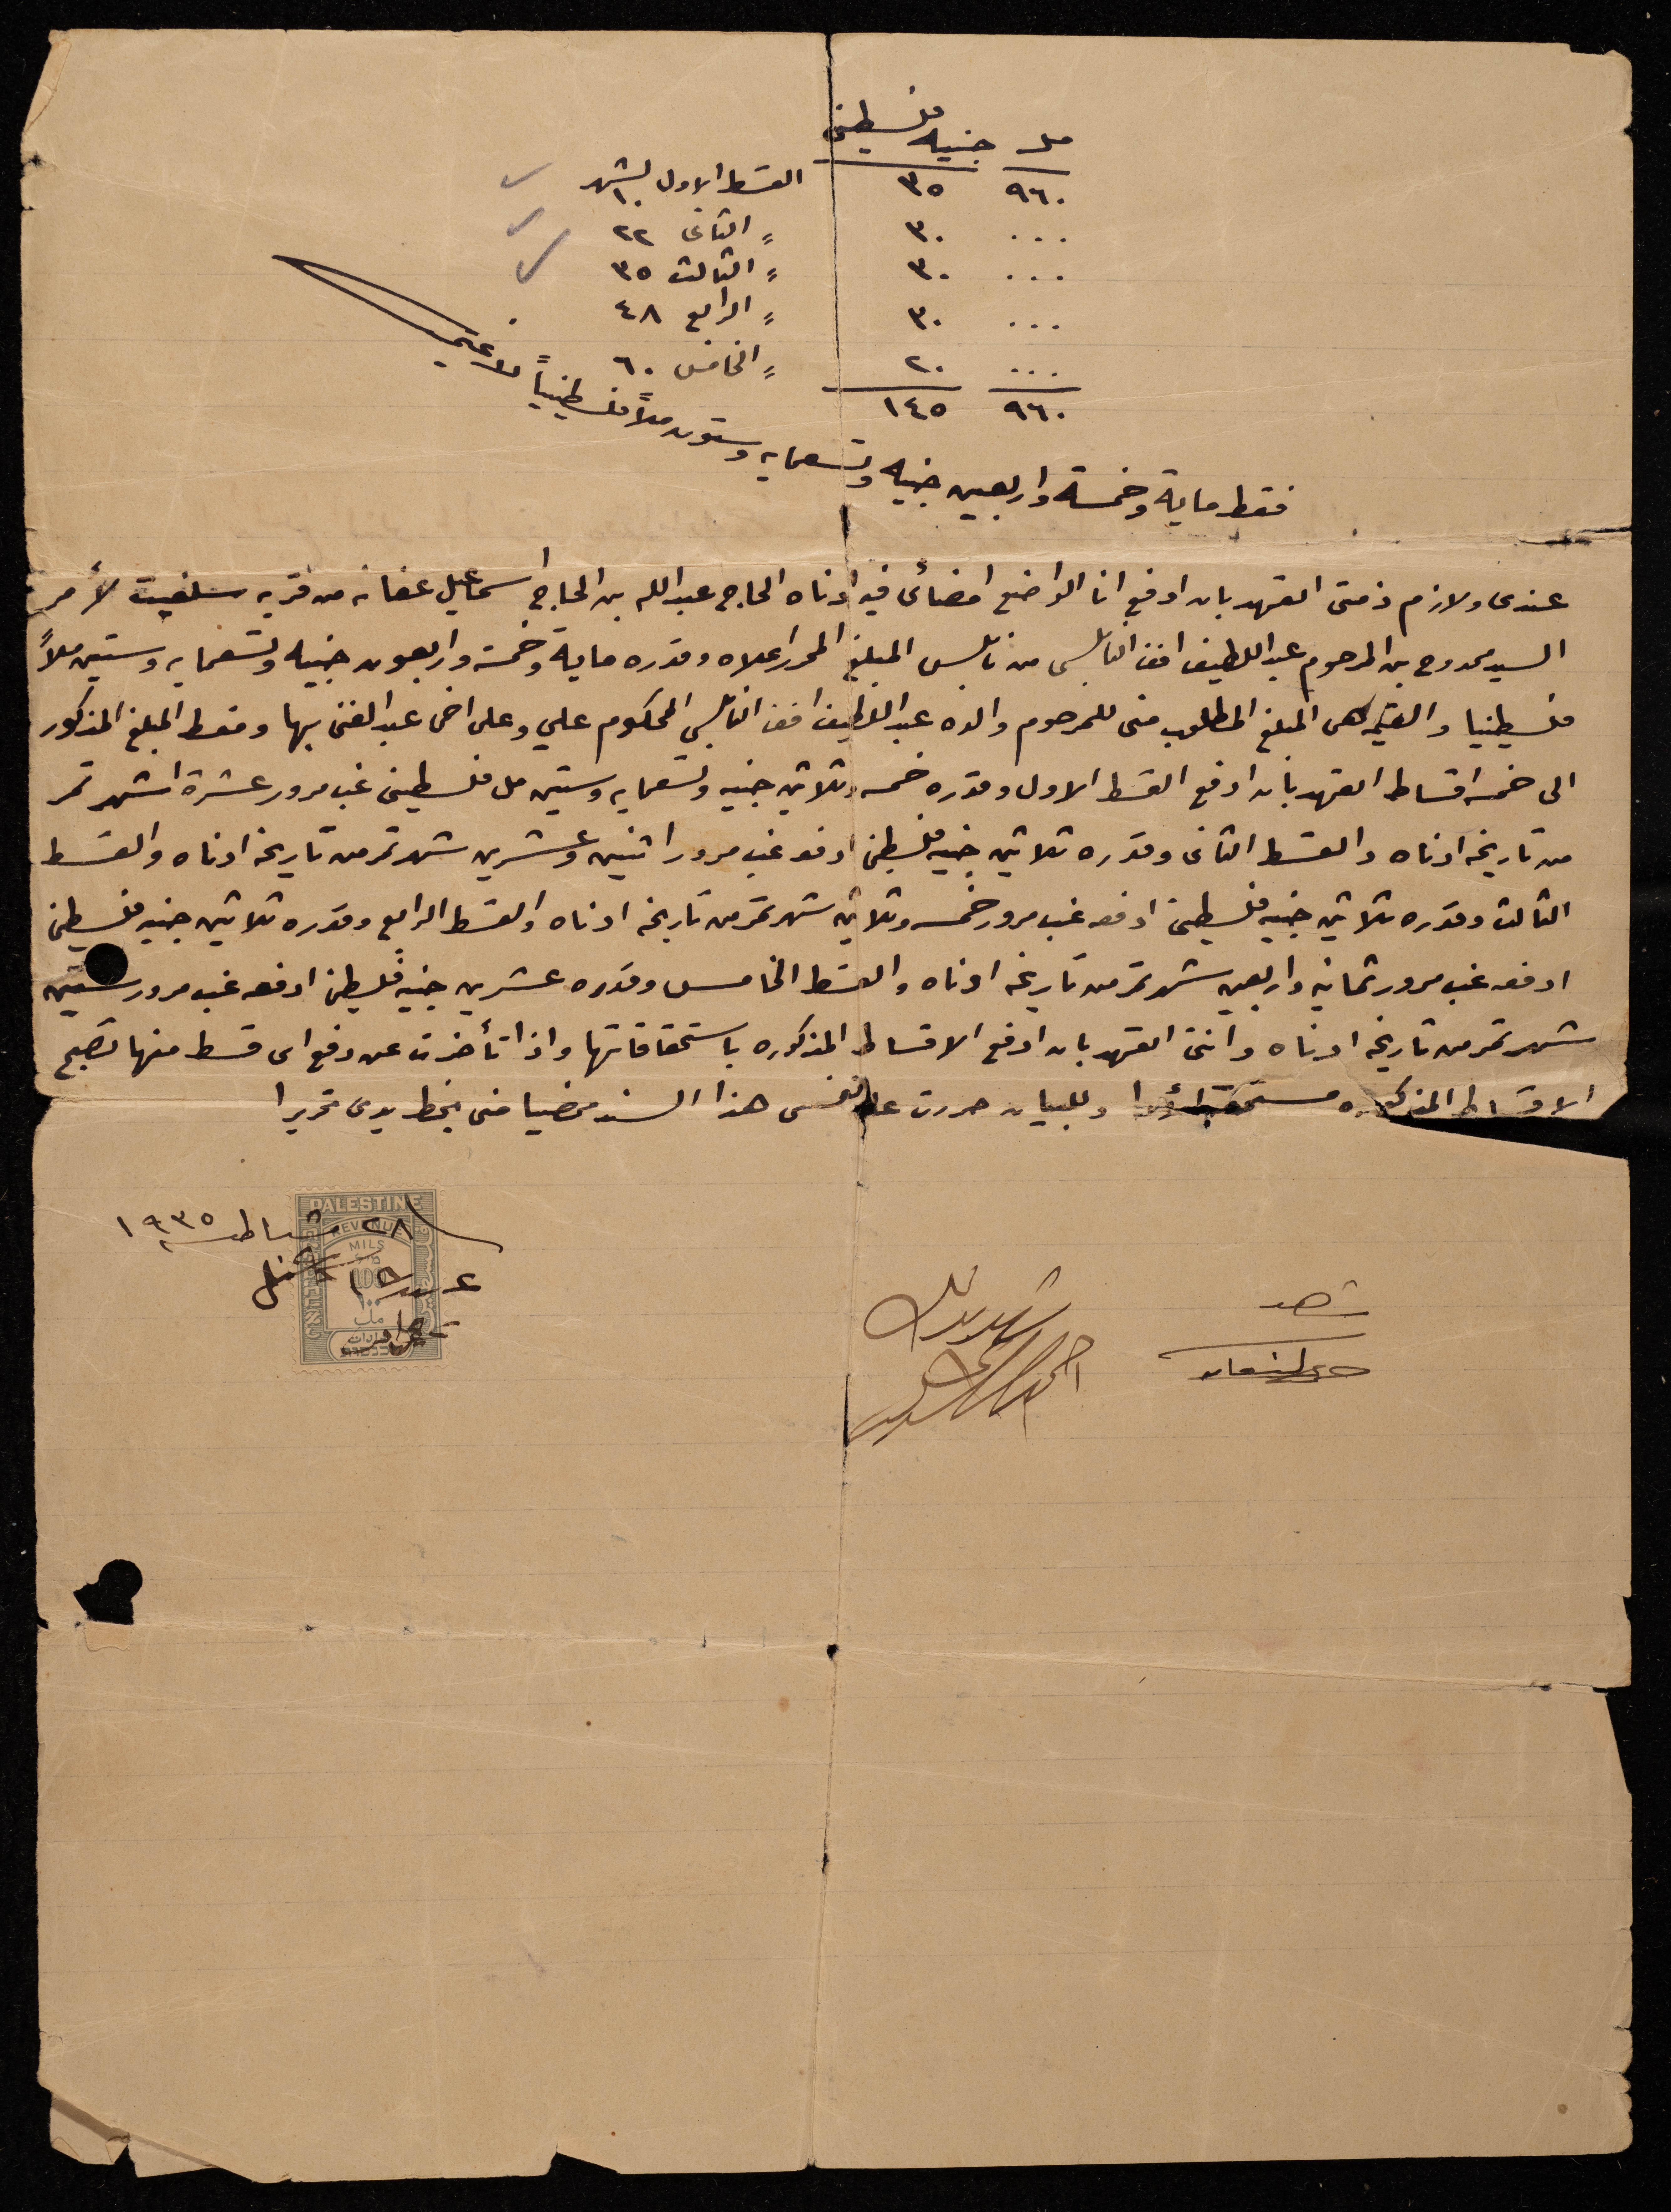 مل جنيه فلسطيني
٩٦٠ ٣٥ القسط الاول لشهر ١٠
... ٣٠ " الثاني ٢٢
... ٣٠ " الثالث ٣٥
... ٣٠ " الرابع ٤٨
... ٢٠ " الخامس ٦٠
٩٦٠ ١٤٥
فقط ماية وخمسة واربعين جنيه وتسعمايه وستون ملاً فلسطينياً لا غير
عندي ولازم ذمتي اتعهد بان ادفع انا الواضع امضائي فيه ادناه الحاج عبد الله بن الحاج اسماعيل عفانه من قرية سلفيت لأمر
السيد ممدوح بن المرحوم عبد اللطيف افندي النابلسي من نابلس المبلغ المحرر اعلاه وقدره ماية وخمسة واربعون جنيه وتسعمايه وستين ملاً
فلسطينيا والقيمه هي المبلغ المطلوب مني للمرحوم والده عبد اللطيف افندي النابلسي المحكوم علي وعلى اخي عبد الغني بها ومقسط المبلغ المذكور
الى خمسة اقساط اتعهد بان ادفع القسط الاول وقدره خمسه وثلاثين جنيه وتسعمايه وستين مل فلسطيني غب مرور عشرة اشهر تمر
من تاريخه ادناه والقسط الثاني وقدره ثلاثين جنيه فلسطيني ادفعه غب مرور اثنين وعشرين شهر تمر من تاريخه ادناه والقسط
الثالث وقدره ثلاثين جنيه فلسطيني ادفعه غب مرور خمسه وثلاثين شهر تمر من تاريخه ادناه والقسط الرابع وقدره ثلاثين جنيه فلسطيني
ادفعه غب مرور ثمانيه واربعين شهر تمر من تاريخه ادناه والقسط الخامس وقدره عشرين جنيه فلسطيني ادفعه غب مرور ستين
شهر تمر من تاريخه ادناه وانني اتعهد بان ادفع الاقساط المذكوره باستحقاقاتها واذا تأخرت عن دفع اي قسط منها تصبح
الاقساط المذكوره مستحقة وللبيان حررت على نفسي هذا السند ممضيا مني بخط يدي تحريرا
٢٨ شباط ١٩٣٥
PALESTINE
REVENUE
MILS
100
١٠٠
مل
شهد
شهد بذلك
احمد